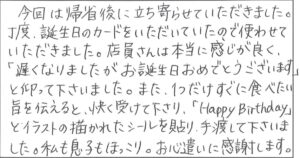 今回は帰省後に立ち寄らせていただきました。
丁度、誕生日のカードをいただいていたので使わせて
いただきました。店員さんは本当に感じが良く、
「遅くなりましたがお誕生日おめでとうございます」
と仰って下さいました。また、1つだけすぐに食べたい
旨を伝えると、快く受けて下さり、「Happy Birthday」
とイラストの描かれたシールを貼り、手渡して下さいま
した。私も息子もほっこり。お心遣いに感謝します。